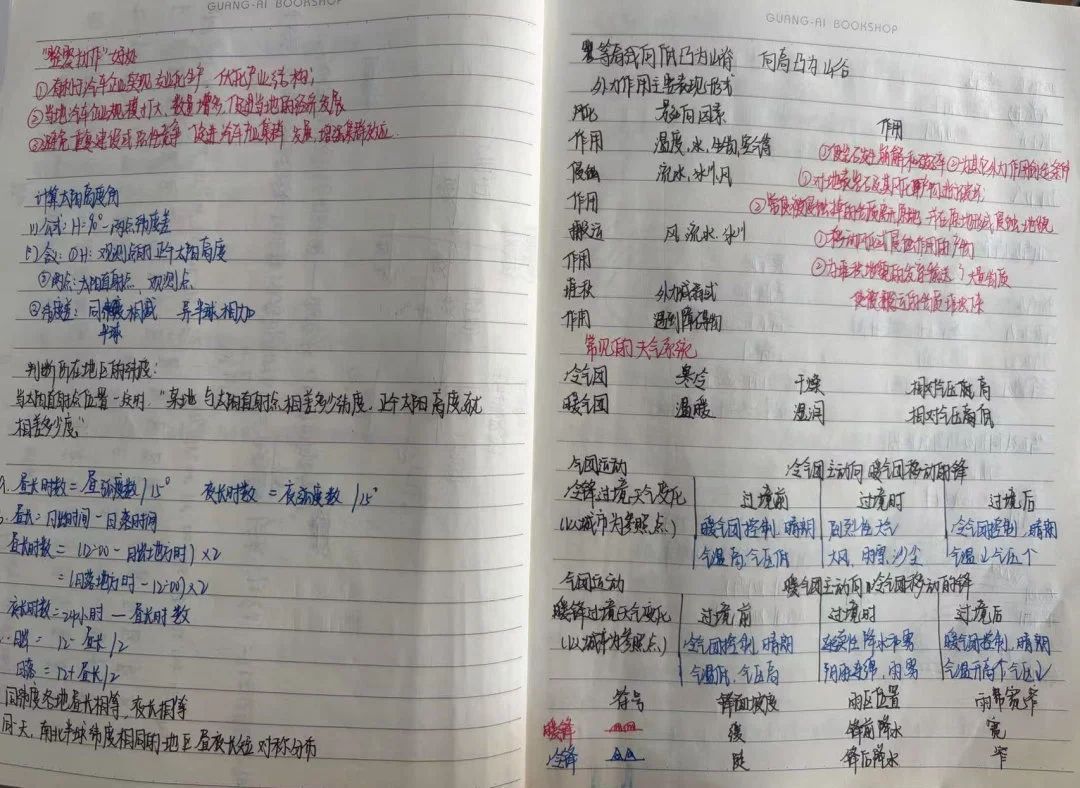 GUANG-AI BOOKSHOP
"整零协作"好处
①有利于汽车企业实现专业化生产 优化产业结构;
②当地汽车企业规模扩大、数量增多,促进当地的经济发展
③避免重复建设或恶性竞争 促进汽车产业集群发展,增强集群效应
计算太阳高度角
(1)公式: H=90°-两点纬度差
①H: 观测点的正午太阳高度
②两点: 太阳直射点 观测点
③纬度差: 同 相减 异半球相加
半球
判断所在地区的纬度:
当太阳直射点位置一定时,"某地与太阳直射点相差多少纬度,正午太阳高度就
相差多少度"
昼长时数=昼弧度数/15° 夜长时数=夜弧度数/15°
昼长=日出时间-日落时间
昼长时数=(12:00-日出地方时)×2
=(日落地方时-12:00)×2
夜长时数=24小时-昼长时数
日出=12-昼长/2
日落=12+昼长/2
同纬度各地昼长相等、夜长相等
同一天,南北半球纬度相同的地区昼夜长短对称分布
GUANG-AI BOOKSHOP
等高线向低凸为山脊 向高凸为山谷
外力作用主要表现形式
风化 影响因素 作用
作用 温度、水、生物、空气等 ①使岩石发生崩解和破碎②为其它外力作用创造条件
侵蚀 流水、冰川、风 ①对地表岩石及其风化产物进行破坏
作用 ②常使被侵蚀掉的物质离开原地,并在原地形成侵蚀地貌
搬运 风、流水、冰川 ①移动风化或侵蚀作用的产物
作用 ②为堆积地貌的发育输送了大量物质
堆积 外力减弱或 使被搬运的物质堆积下来
作用 遇到障碍物
常见的天气系统
冷气团 寒冷 干燥 相对气压 高
暖气团 温暖 湿润 相对气压 低
气团运动 冷气团主动向暖气团移动的锋
冷锋过境天气变化 过境前 过境时 过境后
(以城市为参照点) 暖气团控制,晴朗 大气 冷气团控制,晴朗
气温高,气压低 大风、雨雪、沙尘 气温↓气压↑
气团运动 暖气团主动向冷气团移动的锋
暖锋过境天气变化 过境前 过境时 过境后
(以城市为参照点) 冷气团控制、晴朗 连续性降水和雾 暖气团控制、晴朗
气温低、气压高 阴雨连绵,雨雾 气温升高↑气压↓
符号 锋面坡度 雨区位置 雨带宽窄
暖锋 缓 锋前降水 宽
冷锋 陡 锋后降水 窄